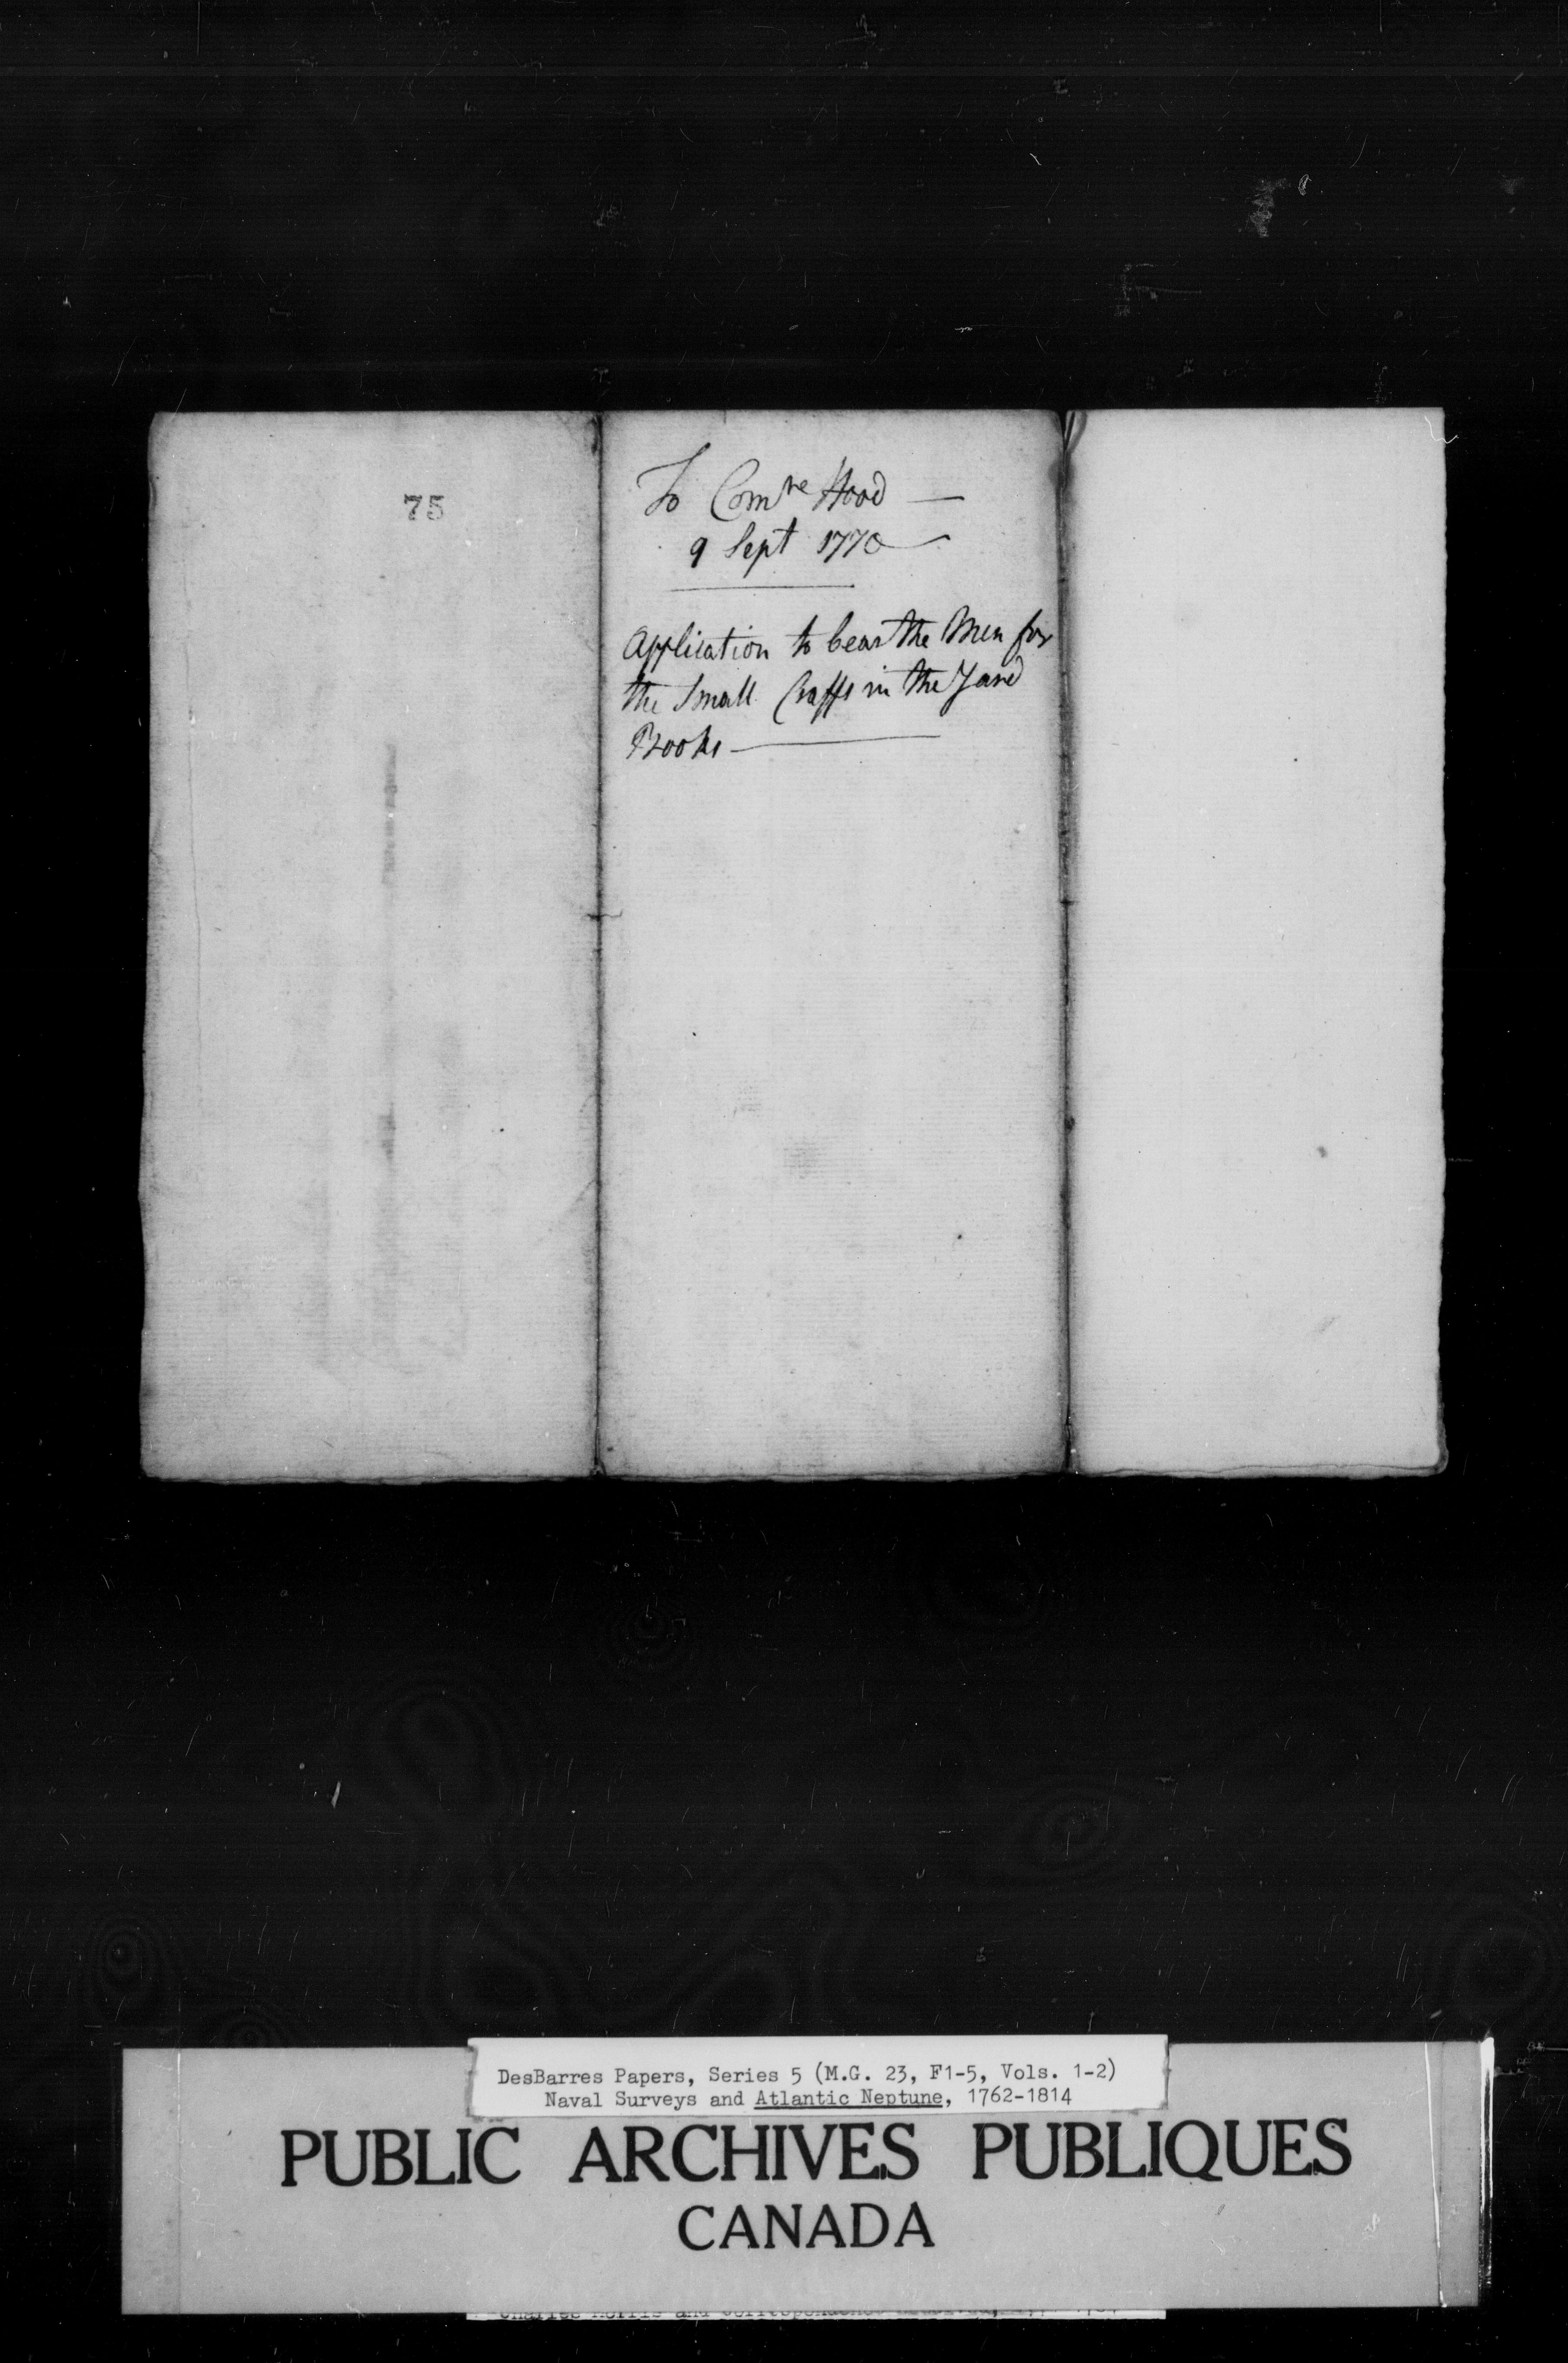 75
To Comre Hood —
9 Sept 1770
Application to bear the Men for
the Small Crafts in the Yard
Books —
DesBarres Papers, Series 5 (M.G. 23, F1-5, Vols. 1-2)
Naval Surveys and Atlantic Neptune, 1762-1814
PUBLIC ARCHIVES PUBLIQUES
CANADA